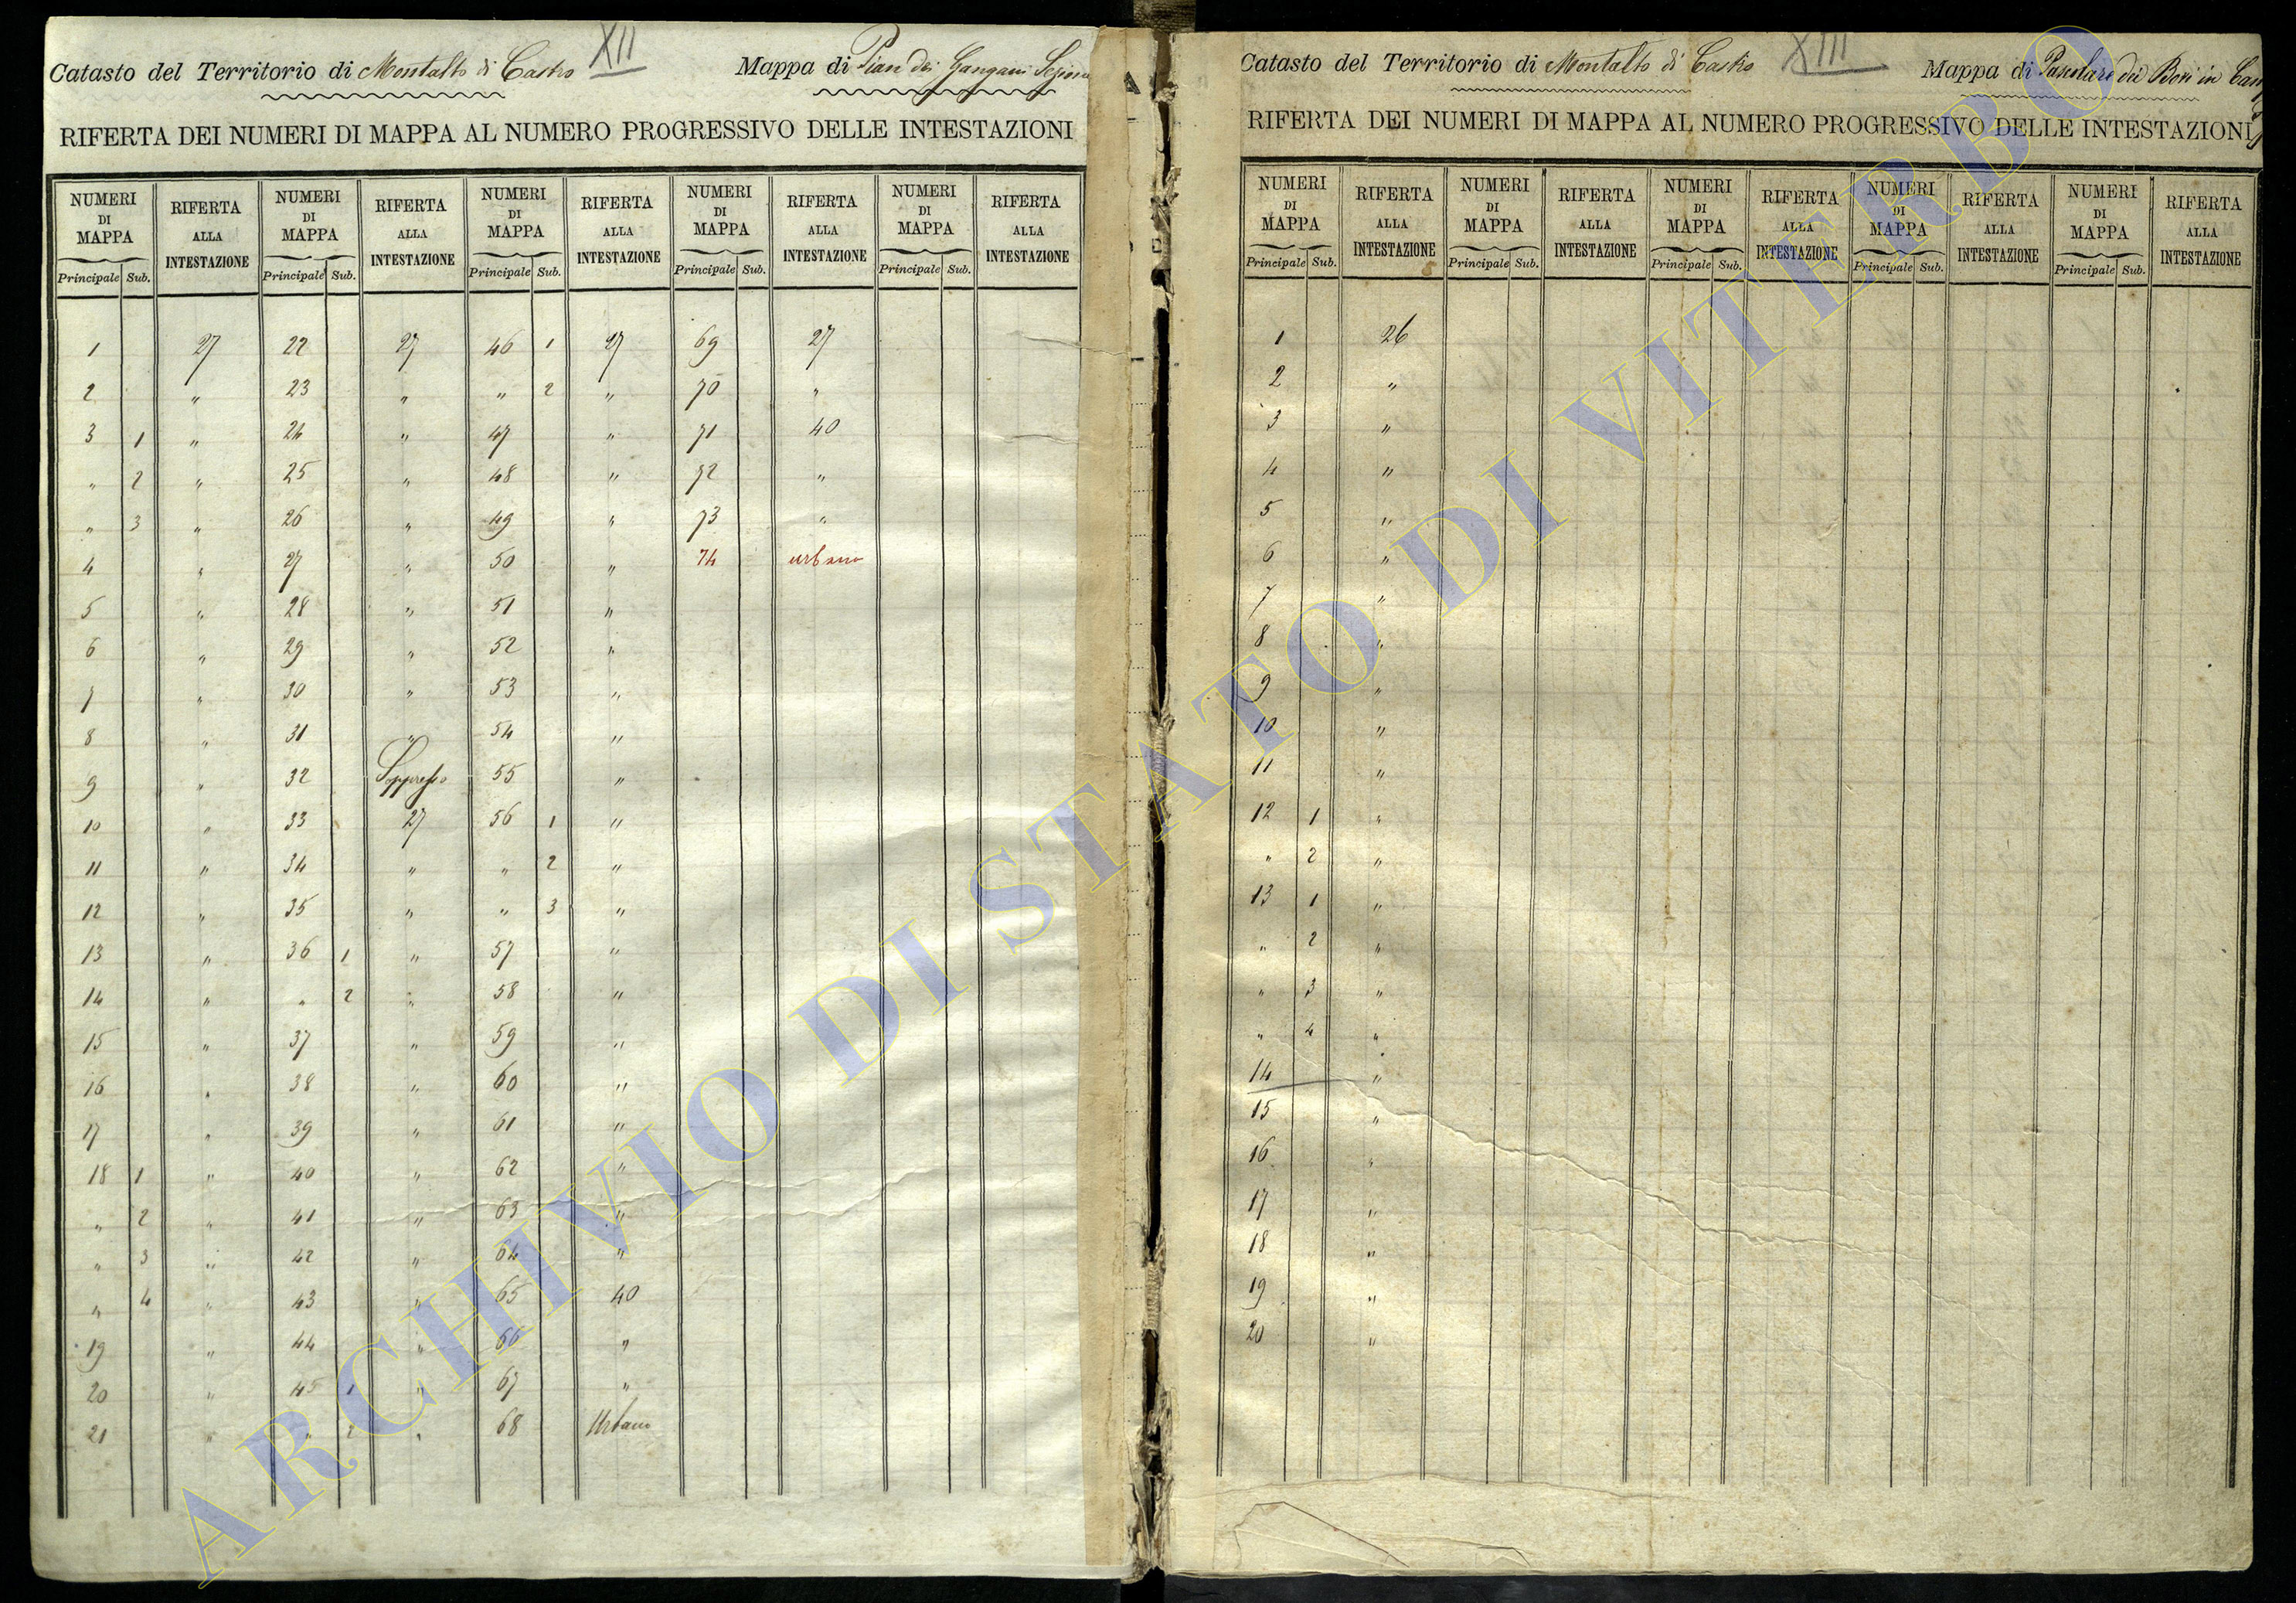 Catasto del Territorio di Montalto di Castro XII Mappa di Pian dei Gangani
RIFERTA DEI NUMERI DI MAPPA AL NUMERO PROGRESSIVO DELLE INTESTAZIONI
NUMERI DI MAPPA RIFERTA ALLA INTESTAZIONE NUMERI DI MAPPA RIFERTA ALLA INTESTAZIONE NUMERI DI MAPPA RIFERTA ALLA INTESTAZIONE NUMERI DI MAPPA RIFERTA ALLA INTESTAZIONE NUMERI DI MAPPA RIFERTA ALLA INTESTAZIONE
Principale Sub. Principale Sub. Principale Sub. Principale Sub. Principale Sub.
1 27 22 27 46 1 27 69 27
2 " 23 " " 2 " 70 "
3 1 " 24 " 47 " 71 40
" 2 " 25 " 48 " 72 "
" 3 " 26 " 49 " 73 "
4 " 27 " 50 " 74 urbano
5 " 28 " 51 "
6 " 29 " 52 "
7 " 30 " 53 "
8 " 31 " 54 "
9 " 32 Soppresso 55 "
10 " 33 27 56 1 "
11 " 34 " " 2 "
12 " 35 " " 3 "
13 " 36 1 " 57 "
14 " " 2 " 58 "
15 " 37 " 59 "
16 " 38 " 60 "
17 " 39 " 61 "
18 1 " 40 " 62 "
" 2 " 41 " 63 "
" 3 " 42 " 64 "
" 4 " 43 " 65 40
19 " 44 " 66 "
20 " 45 1 " 67 "
21 " " 2 " 68 Urbano
Catasto del Territorio di Montalto di Castro XIII Mappa di Pascolare dei Bovi in
RIFERTA DEI NUMERI DI MAPPA AL NUMERO PROGRESSIVO DELLE INTESTAZIONI
NUMERI DI MAPPA RIFERTA ALLA INTESTAZIONE NUMERI DI MAPPA RIFERTA ALLA INTESTAZIONE NUMERI DI MAPPA RIFERTA ALLA INTESTAZIONE NUMERI DI MAPPA RIFERTA ALLA INTESTAZIONE NUMERI DI MAPPA RIFERTA ALLA INTESTAZIONE
Principale Sub. Principale Sub. Principale Sub. Principale Sub. Principale Sub.
1 26
2 "
3 "
4 "
5 "
6 "
7 "
8 "
9 "
10 "
11 "
12 1 "
" 2 "
13 1 "
" 2 "
" 3 "
" 4 "
14 "
15 "
16 "
17 "
18 "
19 "
20 "
ARCHIVIO DI STATO DI VITERBO